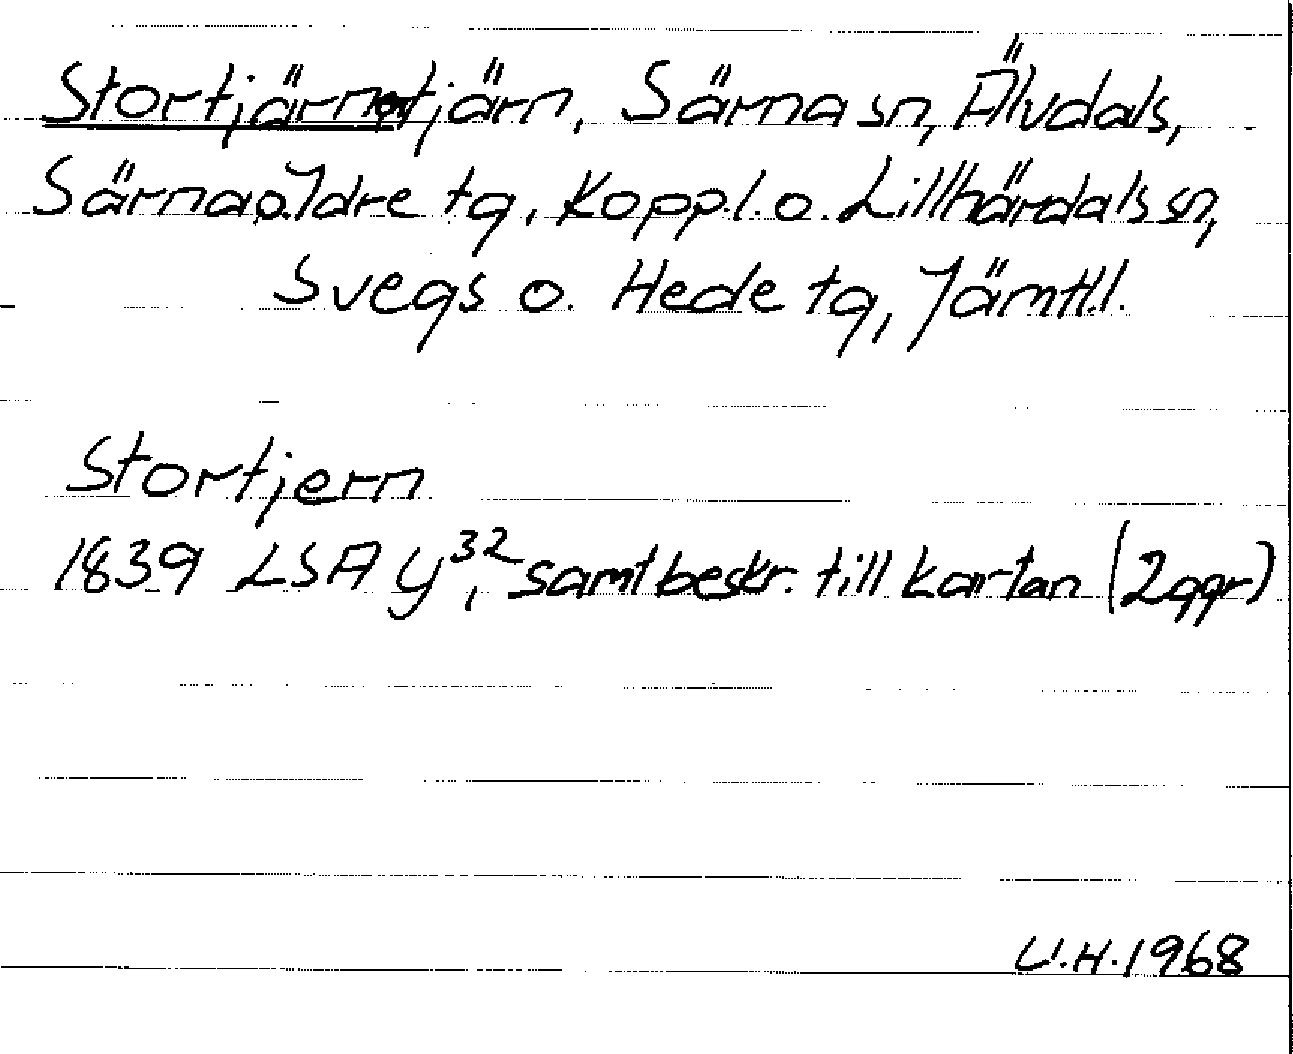 Stortjärn tjärn, Särna sn, Älvdals,
Särna o. Idre tg, Koppl. o. Lillhärdals sn,
Svegs o. Hede tg, Jämtl.l.
Stortjern
1839 LSA y³², samt beskr. till kartan (2ggr)
U.H. 1968